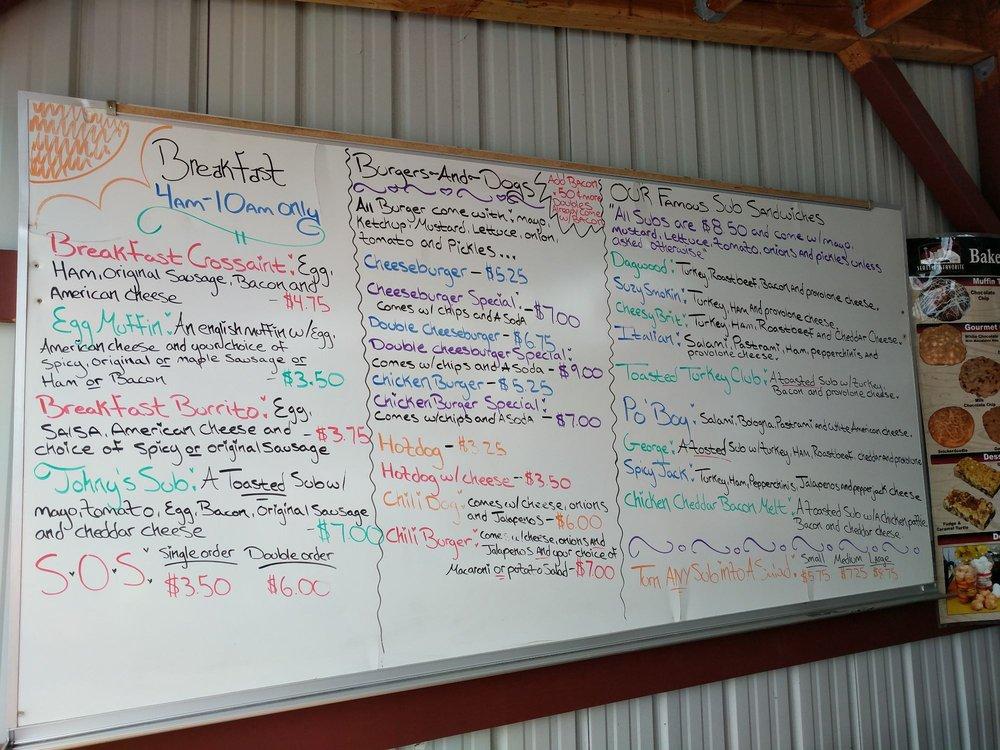 Breakfast
4am-10am only
Breakfast Crossaint: Egg,
Ham, Original Sausage, Bacon and
American cheese - $4.75
Egg Muffin: An english muffin w/Egg,
American cheese and your choice of
Spicy, original or maple Sausage or
Ham or Bacon - $3.50
Breakfast Burrito: Egg,
SALSA, American cheese and - $3.75
choice of Spicy or original Sausage
Johny's Sub: A Toasted Sub w/
mayo, tomato, Egg, Bacon, Original Sausage
and cheddar cheese - $7.00
S.O.S. Single order Double order
$3.50 $6.00
Burgers-And-Dogs
Add Bacon
.50 & more
Doubles
w/ BACON
All Burger come with: mayo,
Ketchup, Mustard, Lettuce, onion,
tomato and Pickles...
Cheeseburger - $5.25
Cheeseburger Special: - $7.00
comes w/ chips and A Soda
Double cheeseburger - $6.75
Double cheesburger Special:
comes w/chips and A soda - $9.00
chicken Burger - $5.25
Chicken Burger Special:
Comes w/chips and A soda - $7.00
Hotdog - $3.25
Hotdog w/ cheese - $3.50
Chili Dog: comes w/ cheese, onions
and Jalapenos - $6.00
Chili Burger: comes w/cheese, onions and
Jalapenos and your choice of
Macaroni or potato Salad - $7.00
OUR Famous Sub Sandwiches
"All Subs are $8.50 and come w/ mayo,
mustard, Lettuce, tomato, onions and pickles unless
asked otherwise"
Dagwood: Turkey, Roast beef, Bacon, and provolone cheese.
Suzy Smokin: Turkey, Ham, And provolone cheese.
Cheesy Brit: Turkey, Ham, Roast beef and Cheddar Cheese."
Italian: Salami, Pastrami, Ham, Pepperchinis and
provolone cheese.
Toasted Turkey Club: A toasted Sub w/ turkey,
Bacon and provolone cheese.
Po' Boy: Salami, Bologna, Pastrami and white American cheese.
George: A tosted Sub w/turkey, HAM, Roast beef, cheddar and provolone
Spicy Jack: Turkey, Ham, Pepperchinis, Jalapenos and pepper jack cheese
Chicken Cheddar Bacon Melt: A toasted Sub w/A chicken pattie,
Bacon and cheddar cheese.
Torn ANY Sub into A Salad: Small Medium Large
$5.75 $7.25 $8.75
Bake
Muffin T
Chocolate
Chip
Gourmet
Milk
Chocolate Chip
Snickerdoodle
Dess
Fudge &
Caramel Turtle
De